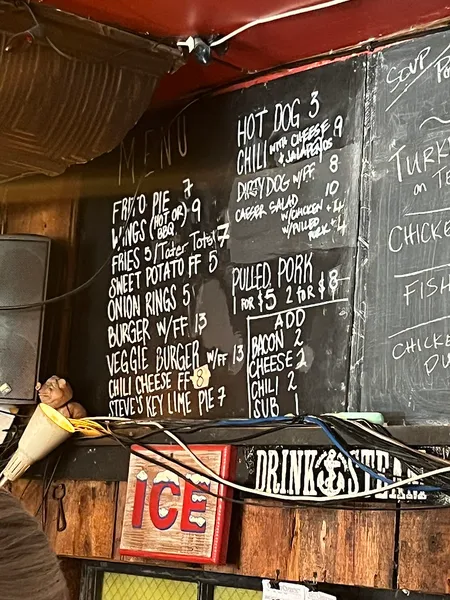 MENU
FRITO PIE 7
WINGS (HOT OR BBQ) 9
FRIES 5/Tater Tots 7
SWEET POTATO FF 5
ONION RINGS 5
BURGER W/FF 13
VEGGIE BURGER W/FF 13
CHILI CHEESE FF 8
STEVE'S KEY LIME PIE 7
HOT DOG 3
CHILI WITH CHEESE & JALAPENOS 9
DIRTY DOG W/FF 8
CAESER SALAD 10
W/CHICKEN +4
W/PULLED PORK +4
PULLED PORK
1 FOR $5 2 FOR $8
ADD
BACON 2
CHEESE 2
CHILI 2
SUB 1
SOUP
TURK
on Te
CHICKE
FISH
CHICKE
ICE
DRINK STEA